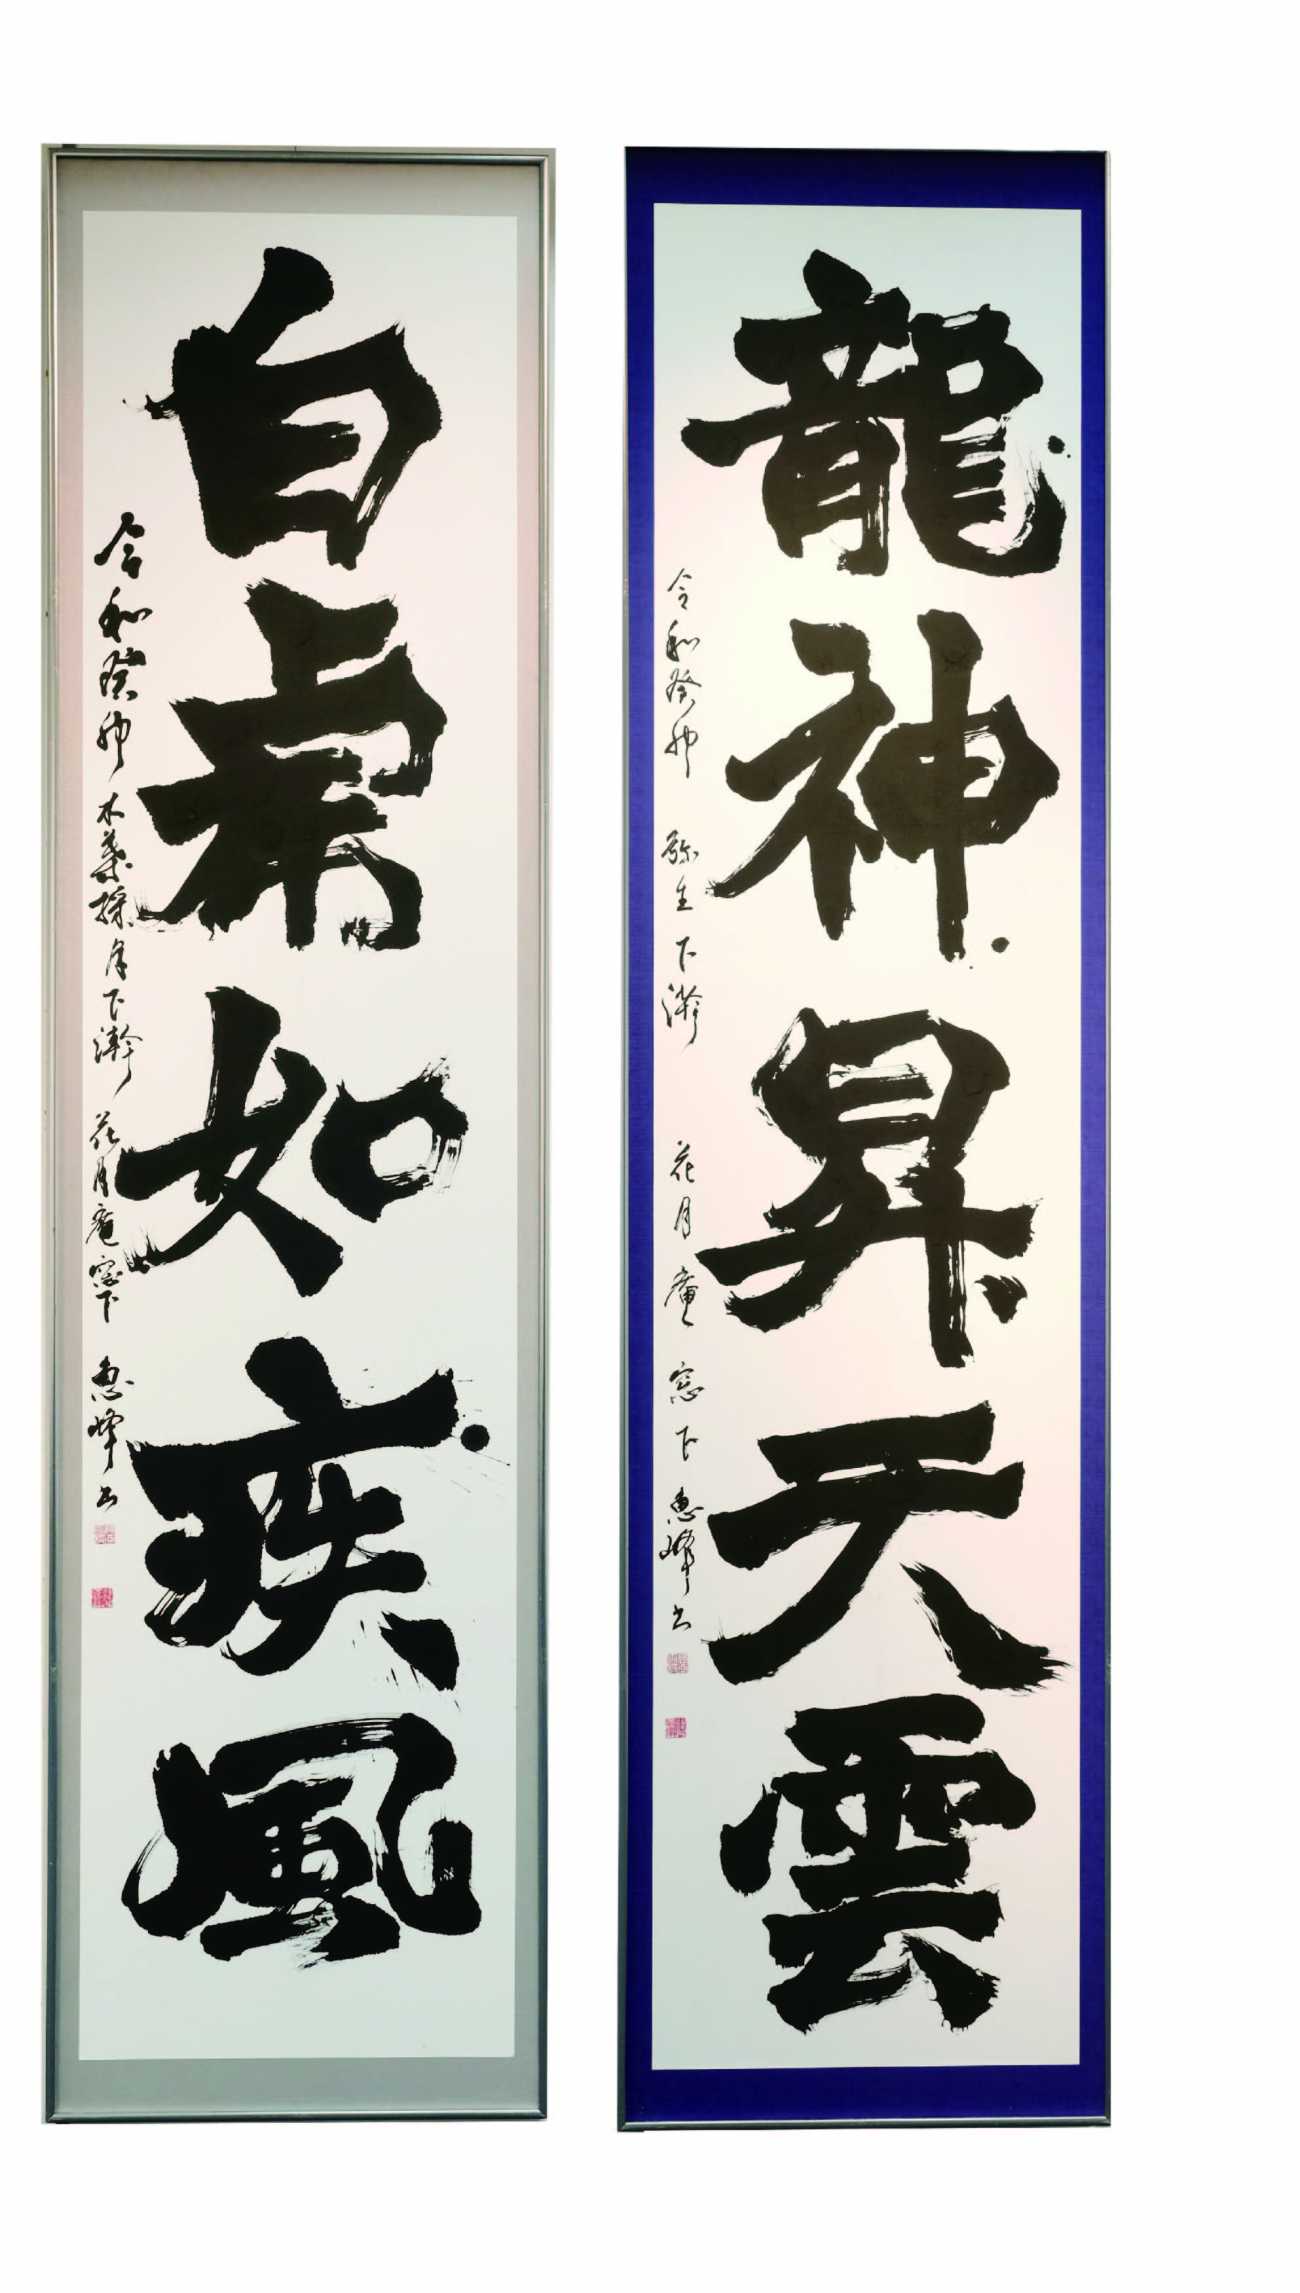 龍神昇天雲
令和癸卯 弥生下澣 花月庵窓下 惠峰書
白虎如疾風
令和癸卯 木葉採月下澣 花月庵窓下 惠峰書